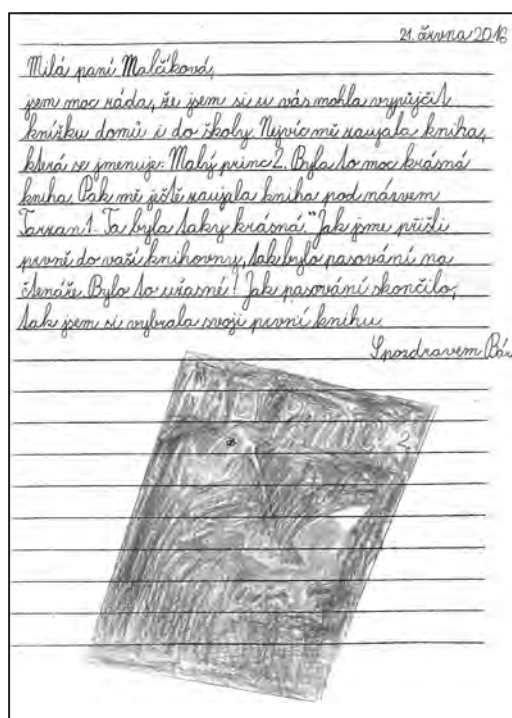 21. června 2016
Milá paní Malčíková,
jsem moc ráda, že jsem si u vás mohla vypůjčit
knížku domů i do školy. Nejvíc mě zaujala kniha,
která se jmenuje: Malý princ 2. Byla to moc krásná
kniha. Pak mě ještě zaujala kniha pod názvem
Tarzan 1. Ta byla taky krásná." Jak jsme přišli
prvně do vaší knihovny, tak bylo pasování na
čtenáře. Bylo to užasné! Jak pasování skončilo,
tak jsem si vybrala svoji první knihu.
S pozdravem Bár
2